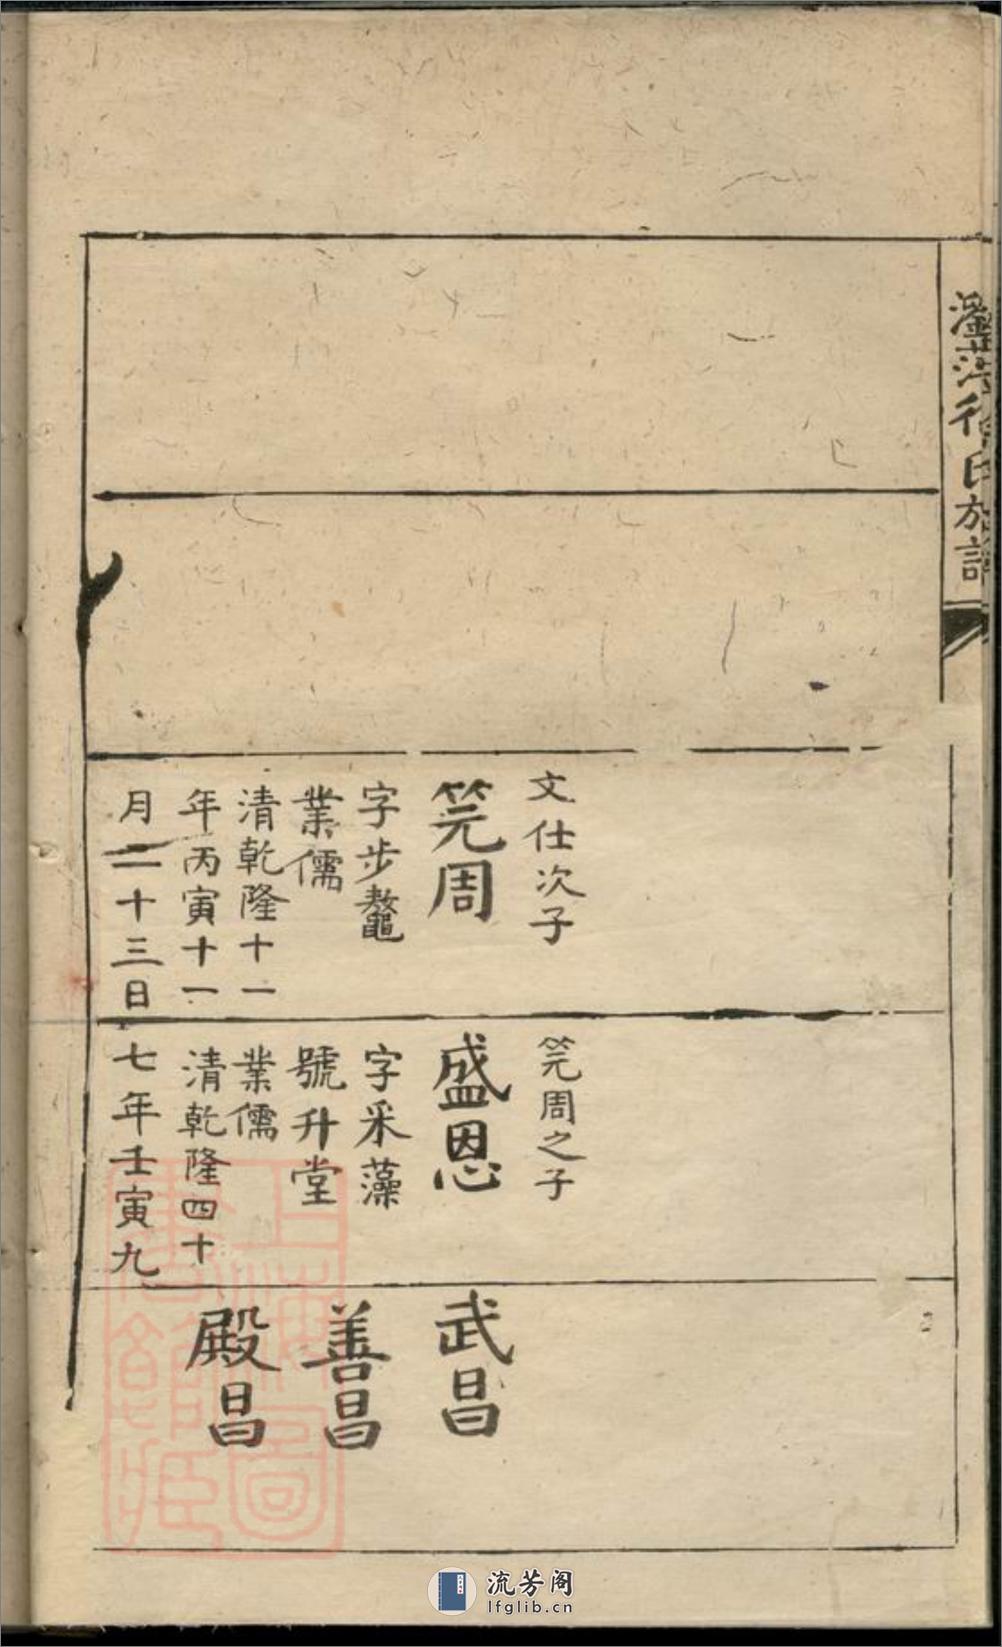 文仕次子
筦周
字步鼇
業儒
清乾隆十一
年丙寅十一
月二十三日
筦周之子
盛恩
字采藻
號升堂
業儒
清乾隆四十
七年壬寅九
武昌
善昌
殿昌
上海圖
書館藏
流芳阁
lfglib.cn